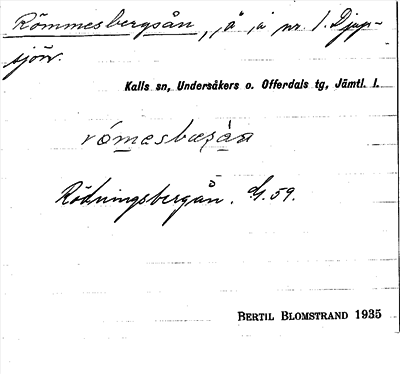 Römmesbergsån, "å" i nr. 1. Djup-
sjön.
Kalls sn, Undersåkers o. Offerdals tg, Jämtl. l.
Rödningsbergån. G. 59.
BERTIL BLOMSTRAND 1935